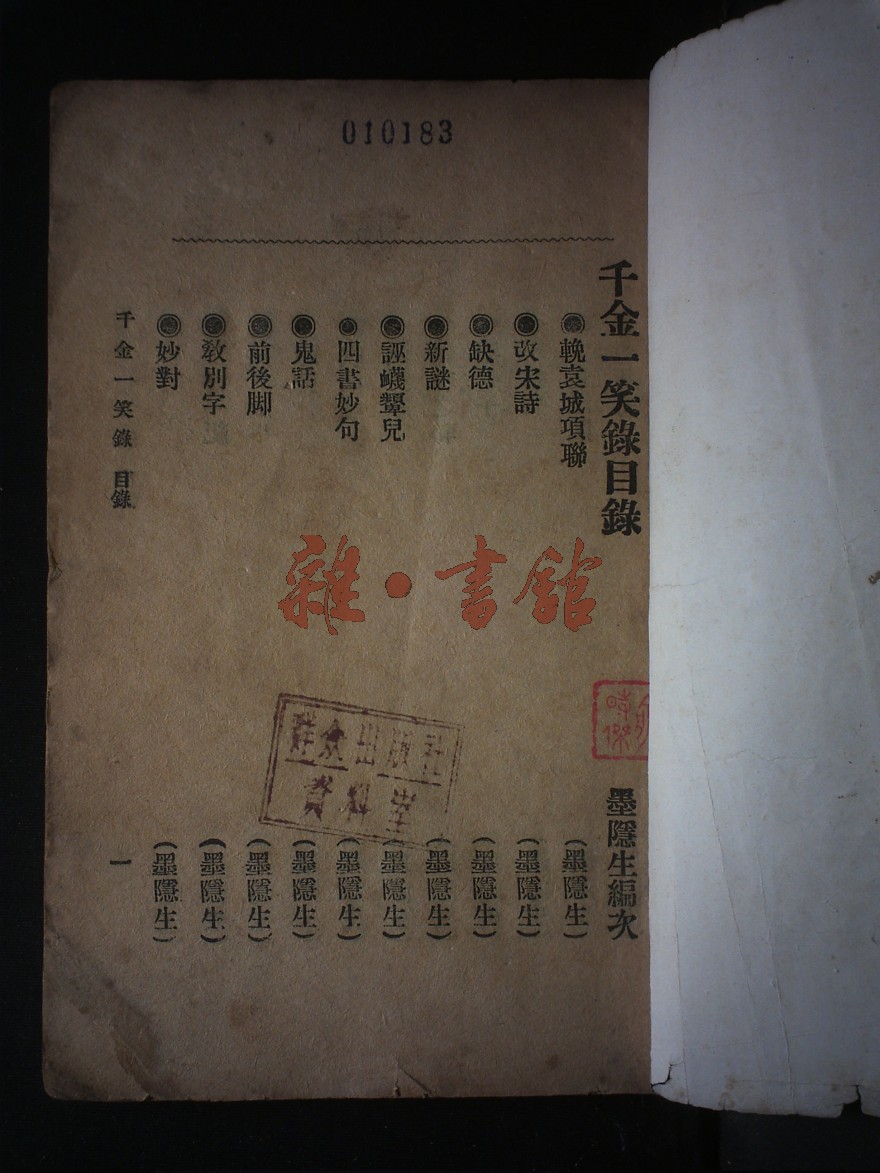 010183
千金一笑錄目錄
墨隱生編次
◉輓袁城項聯 (墨隱生)
◉改宋詩 (墨隱生)
◉缺德 (墨隱生)
◉新謎 (墨隱生)
◉誣蠛顰兒 (墨隱生)
◉四書妙句 (墨隱生)
◉鬼話 (墨隱生)
◉前後脚 (墨隱生)
◉敎別字 (墨隱生)
◉妙對 (墨隱生)
千金一笑錄 目錄 一
雜·書館
群众出版社
資料室
時傑